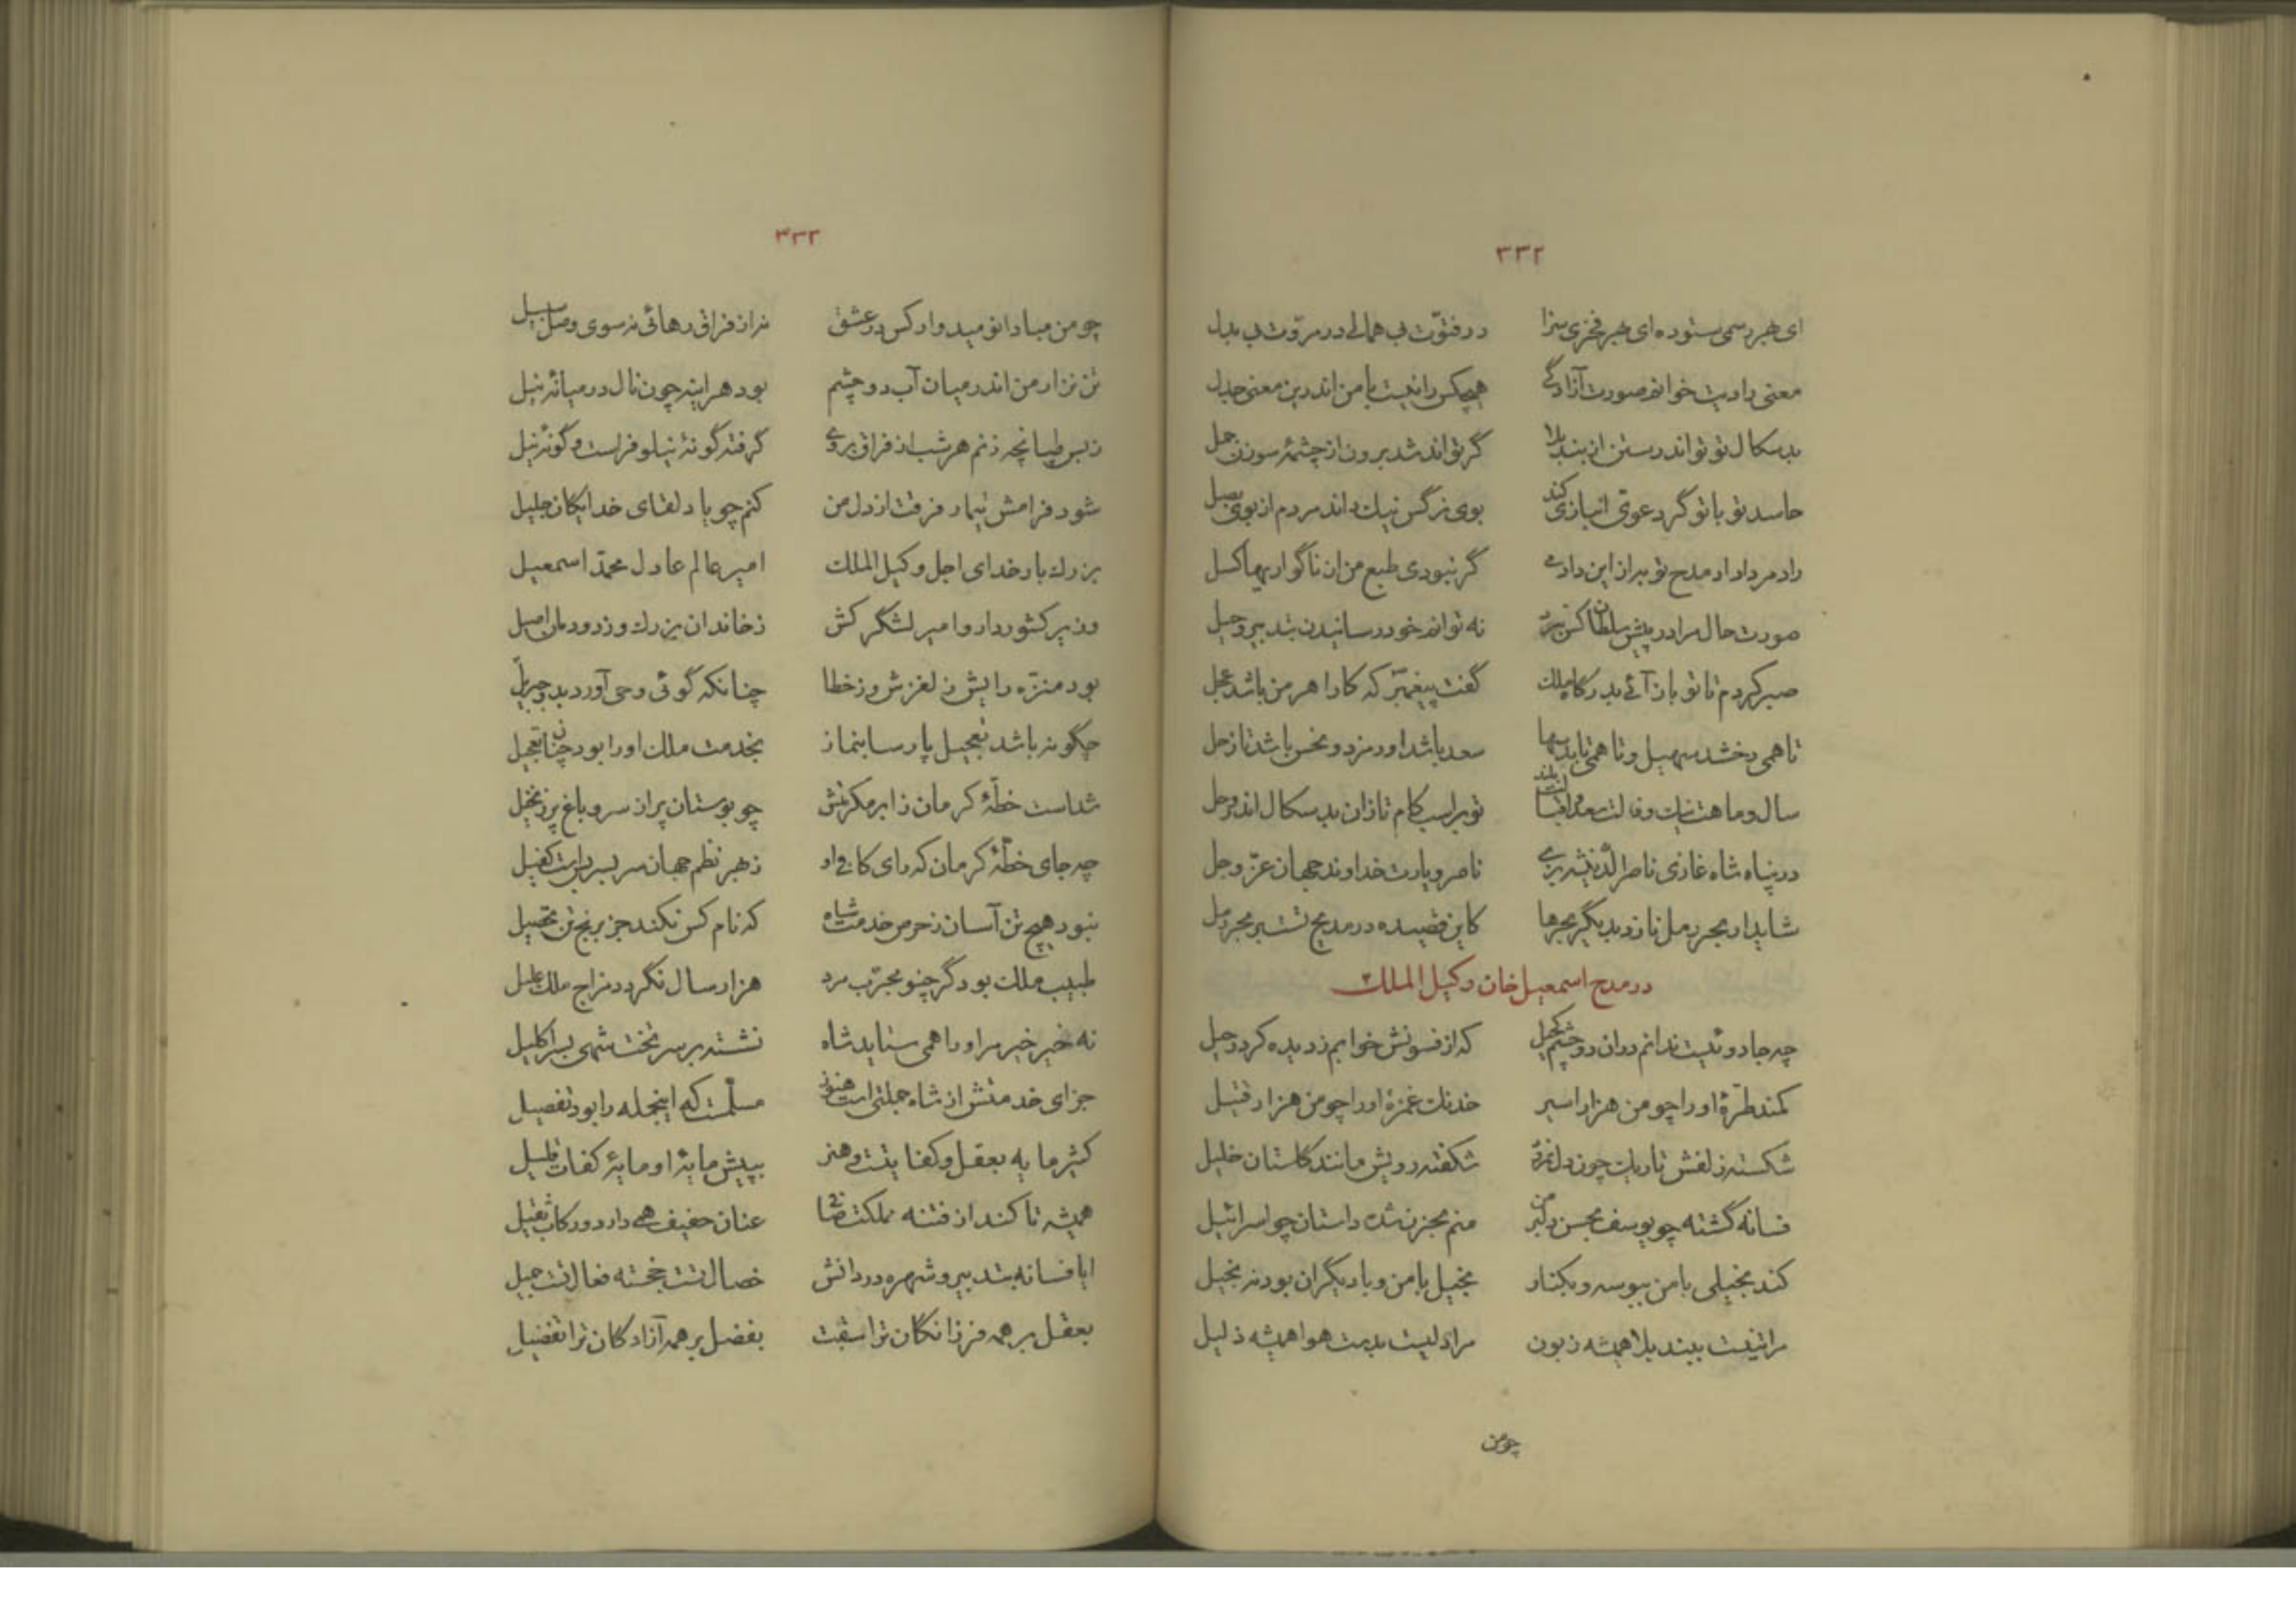 ۳۳۲
ای بهر رسمی ستوده ای بهر فخری سزا در فتوّت بی همالی در مروّت بی بدل
معنی رادیت خوانم صورت آزادگی هیچکس را نیست با من اندرین معنی جدل
بدسکال تو تواند رستن از بند بلا گر تواند شد برون از چشمهٔ سوزن جمل
حاسد تو با تو گر دعوی انبازی کند بوی نرگس نیک داند مردم از بوی بصل
راد مردا داد مدح تو بران این دادمی گر نبودی طبع من زان ناگواریها کسل
صورت حال مرا در پیش سلطان کن نه تواند خود رسانیدن بتدبیر و حیل
صبر کردم تا تو باز آئی بدرگاه ملک گفت پیغمبر که کارا هر من باشد عجل
تا همی رخشد سهیل و تا همی تابد سها سعد باشد اورمزد و نحس باشد تا زحل
سال و ماهت نیک و فالت سعد و بلند تو بر اسب کام تازان بدسکال اندر وحل
در پناه شاه غازی ناصرالدّین ناصر و یارت خداوند جهان عزّ و جل
شاید ار بحر رمل نازد بدیگر بحرها کاین قصیده در مدیح تست بر بحر رمل
در مدح اسمعیل خان وکیل الملک
چه جادوئیست ندانم دران دو چشم کحیل که از فسونش خوابم ز دیده کرد رحیل
کمند طرّهٔ او را چو من هزار اسیر خدنک غمزهٔ او را چو من هزار قتیل
شکسته زلفش تاریک چون دل نمرود شکفته رویش مانند گلستان خلیل
فسانه گشته چو یوسف بحسن دلبر من منم بحزن شده داستان چو اسرائیل
کند بخیلی با من ببوسه و بکنار بخیل با من و با دیگران بود نه بخیل
مرا تنیست ببند بلا همیشه زبون مرا دلیست بدست هوا همیشه ذلیل
چو من
۳۳۳
چو من مبادا نومیدوار کس در عشق نه از فراق رهائی نه سوی وصل سبیل
تن نزار من اندر میان آب دو چشم بود هراینه چون نال در میانهٔ نیل
ز بس طپانچه زنم هر شب از فراق بروی گرفته گونهٔ نیلوفر است و گونهٔ نیل
شود فرامش تیمار فرقت از دل من کنم چو یاد لقای خدایکان جلیل
بزرک بار خدای اجل وکیل الملک امیر عالم عادل محمّد اسمعیل
وزیر کشوردار و امیر لشگرکش ز خاندان بزرک و ز دودمان اصیل
بود منزّه رایش ز لغزش و ز خطا چنانکه گوئی وحی آورد بدو جبریل
چگونه باشد تعجیل پارسا بنماز بخدمت ملک او را بود چنان تعجیل
شداست خطّهٔ کرمان ز ابر مکرمتش چو بوستان پر از سرو باغ پر ز نخیل
چه جای خطّهٔ کرمان که رای کافی او ز بهر نظم جهان سربسر بس است کفیل
نبود هیچ تن آسان ز حرص خدمت شاه که نام کس نکند جز برنج تن تحصیل
طبیب ملک بود گر چنو مجرّب مرد هزار سال نگردد مزاج ملک علیل
نه خیر خیر مر او را همی ستاید شاه نشسته بر سر تخت شهی بسر اکلیل
جزای خدمتش از شاه جملتی است هنوز مسلّمست که اینجمله را بود تفصیل
کثیر مایه بعقل و کفایتست و هنر بپیش مایهٔ او مایهٔ کفات قلیل
همیشه تا کند از فتنه مملکت صافی عنان خفیف همی دارد و رکاب ثقیل
ایا فسانه بتدبیر و شهره در دانش خصال تست خجسته فعال تست جمیل
بعقل بر همه فرزانگان تراسبقت بفضل بر همه آزادگان ترا تفضیل